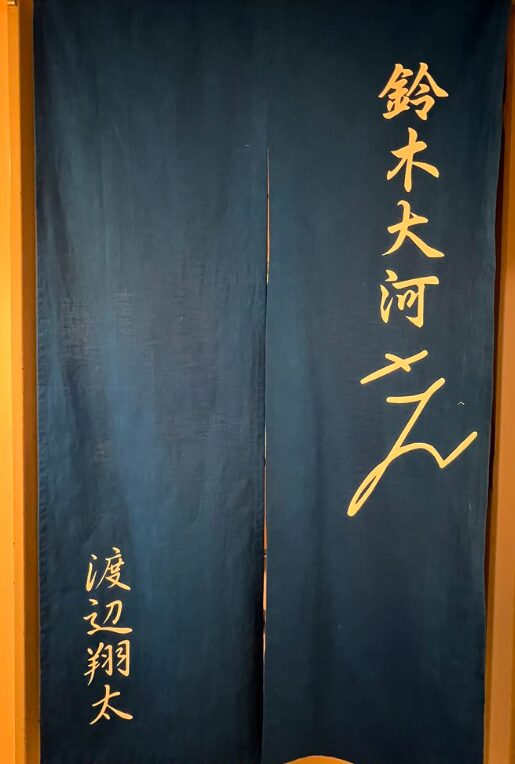 鈴木大河さん
渡辺翔太